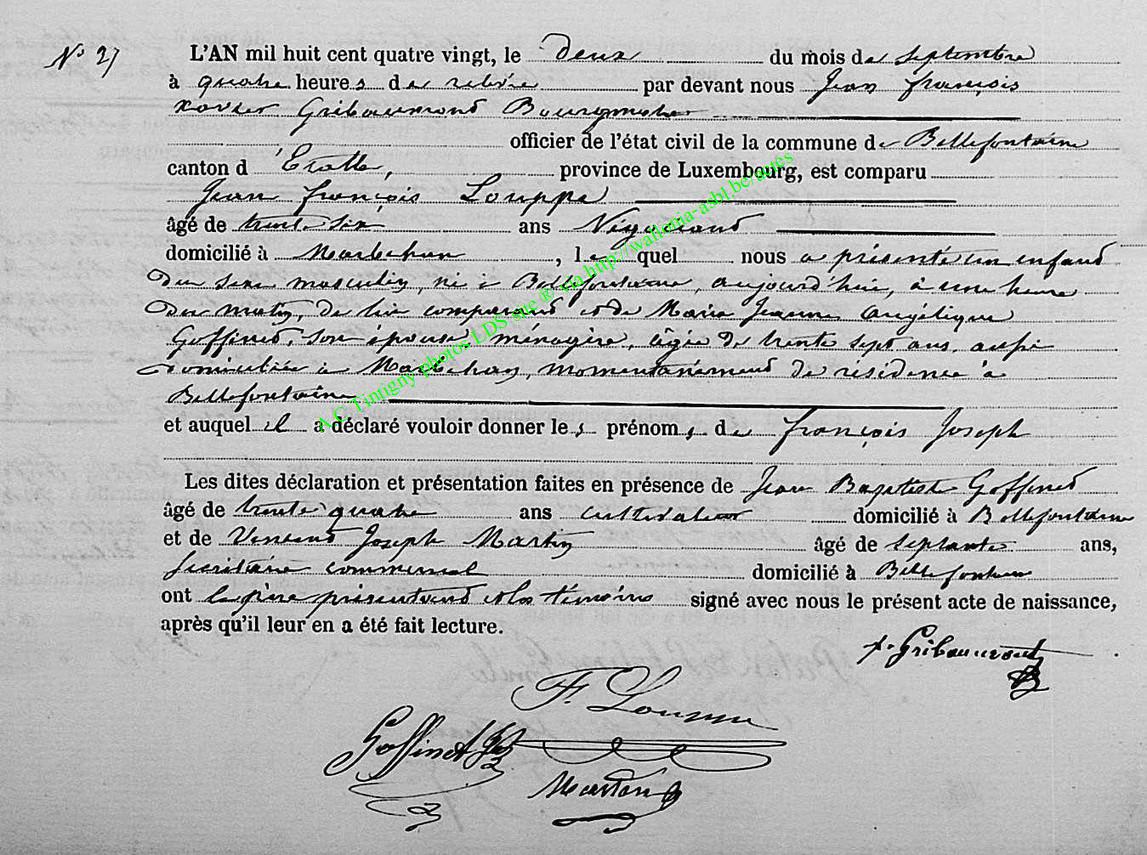 N° 27
L'AN mil huit cent quatre vingt, le deux du mois de septembre
à quatre heures de relevée par devant nous Jean françois
xavier Gribaumont Bourgmestre
officier de l'état civil de la commune de Bellefontaine
canton d'Etalle, province de Luxembourg, est comparu
Jean françois Louppe
âgé de trente six ans Négociant
domicilié à Marbehan, lequel nous a présenté un enfant
du sexe masculin, né à Bellefontaine, aujourd'hui, à une heure
du matin, de lui comparant et de Marie Jeanne Angélique
Goffinet, son épouse ménagère, âgée de trente sept ans, aussi
domiciliée à Marbehan, momentanément de résidence à
Bellefontaine
et auquel il a déclaré vouloir donner les prénoms de françois Joseph
Les dites déclaration et présentation faites en présence de Jean Baptiste Goffinet
âgé de trente quatre ans cultivateur domicilié à Bellefontaine
et de Vincent Joseph Martin âgé de septante ans,
secrétaire communal domicilié à Bellefontaine
ont le père présentant et les témoins signé avec nous le présent acte de naissance,
après qu'il leur en a été fait lecture.
Gribaumont
F. Louppe
Goffinet
Martin
A.C Tintigny photos LDS site ® via http://wallonia-asbl.be/actes